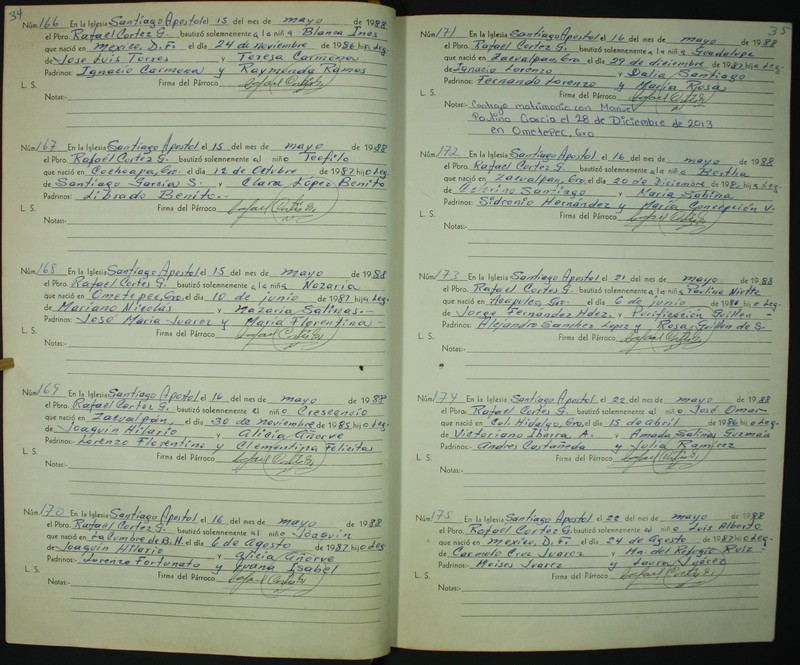 34
Núm. 166 En la Iglesia Santiago Apostol el 15 del mes de mayo de 1988
el Pbro. Rafael Cortez G. bautizó solemnemente a la niña Blanca Ines
que nació en Mexico, D.F. el día 24 de noviembre de 1986 hija Leg.
de Jose Luis Torres y Teresa Carmona
Padrinos: Ignacio Carmona y Raymunda Ramos
Firma del Párroco
L. S.
Notas:-
Núm. 167 En la Iglesia Santiago Apostol el 15 del mes de mayo de 1988
el Pbro. Rafael Cortez G. bautizó solemnemente al niño Teofilo
que nació en Cochoapa, Gro. el día 12 de Octubre de 1987 hijo Leg.
de Santiago Garcia S. y Clara López Benito
Padrinos: Librado Benito.-
Firma del Párroco
L. S.
Notas:-
Núm. 168 En la Iglesia Santiago Apostol el 15 del mes de mayo de 1988
el Pbro. Rafael Cortes G. bautizó solemnemente a la niña Nazaria
que nació en Ometepec, Gro. el día 10 de junio de 1987 hija Leg.
de Mariano Nicolas y Nazaria Salinas.-
Padrinos: José Maria Juarez y Maria Florentina -
Firma del Párroco
L. S.
Notas:-
Núm. 169 En la Iglesia Santiago Apostol el 16 del mes de mayo de 1988
el Pbro. Rafael Cortez G. bautizó solemnemente al niño Crescencio
que nació en Zacualpán, el día 30 de noviembre de 1985 hijo Leg.
de Joaquin Hilario y Alicia Añorve
Padrinos: Lorenzo Florentino y Clementina Felicitas
Firma del Párroco
L. S.
Notas:-
Núm. 170 En la Iglesia Santiago Apostol el 16 del mes de mayo de 1988
el Pbro. Rafael Cortez G. bautizó solemnemente al niño Joaquin
que nació en La Cumbre de B.H. el día 6 de Agosto de 1987 hijo Leg.
de Joaquin Hilario y Alicia Añorve
Padrinos: Lorenzo Fortunato y Juana Isabel
Firma del Párroco
L. S.
Notas:-
35
Núm. 171 En la Iglesia Santiago Apostol el 16 del mes de mayo de 1988
el Pbro. Rafael Cortez G. bautizó solemnemente a la niña Guadalupe
que nació en Zacualpan, Gro. el día 29 de diciembre de 1987 hija Leg.
de Ignacio Lorenzo y Dalia Santiago
Padrinos: Fernando Lorenzo y Maria Rosa
Firma del Párroco
L. S.
Notas:- Contrajo matrimonio con Manuel
Paulino Garcia el 28 de Diciembre de 2013
en Ometepec, Gro
Núm. 172 En la Iglesia Santiago Apostol el 16 del mes de mayo de 1988
el Pbro. Rafael Cortez G. bautizó solemnemente a la niña Bertha
que nació en Zacualpan, Gro. el día 20 de Diciembre de hija Leg.
de Santiago y Maria Sabina
Padrinos: Sidronio Hernández y Maria Concepción V.
Firma del Párroco
L. S.
Notas:-
Núm. 173 En la Iglesia Santiago Apostol el 21 del mes de mayo de 1988
el Pbro. Rafael Cortes G. bautizó solemnemente a la niña Paulina
que nació en Acapulco, Gro. el día 6 de junio de 1986 hija Leg.
de Jorge Fernández Hdez. y Purificación Guillen -
Padrinos: Alejandro Sanchez Lopez y Rosa Guillen de S.
Firma del Párroco
L. S.
Notas:-
Núm. 174 En la Iglesia Santiago Apostol el 22 del mes de mayo de 1988
el Pbro. Rafael Cortes G. bautizó solemnemente al niño José Omar
que nació en Col. Hidalgo, Gro. el día 15 de abril de 1986 hijo Leg.
de Victoriano Ibarra A. y Amada Salinas Guzmán
Padrinos: Andres Castañeda y Julia Ramirez
Firma del Párroco
L. S.
Notas:-
Núm. 175 En la Iglesia Santiago Apostol el 22 del mes de mayo de 1988
el Pbro. Rafael Cortez G. bautizó solemnemente al niño Luis Alberto
que nació en Mexico, D.F. el día 24 de Agosto de 1987 hijo Leg.
de Carmelo Cruz Juarez y Ma. del Refugio Ruiz -
Padrinos: Moises Juarez y Laura Juarez
Firma del Párroco
L. S.
Notas:-